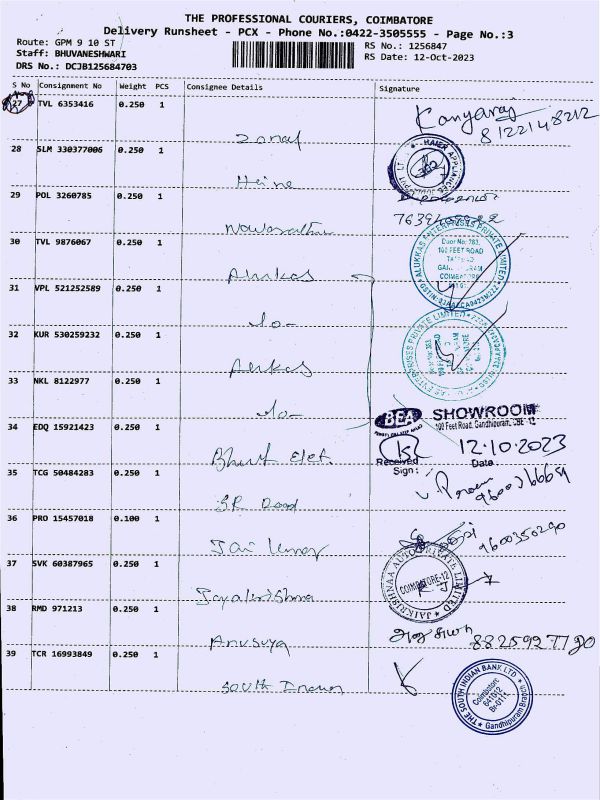 THE PROFESSIONAL COURIERS, COIMBATORE
Delivery Runsheet - PCX - Phone No.:0422-3505555 - Page No.:3
Route: GPM 9 10 ST
Staff: BHUVANESHWARI
DRS No.: DCJB125684703
RS No.: 1256847
RS Date: 12-Oct-2023
S No Consignment No Weight PCS Consignee Details Signature
27 TVL 6353416 0.250 1
8122148212
28 SLM 330377006 0.250 1
Heine
29 POL 3260785 0.250 1
30 TVL 9876067 0.250 1
Alukas
ALUKKAS ENTERPRISES PRIVATE LIMITED
Door No: 783,
100 FEET ROAD
31 VPL 521252589 0.250 1
32 KUR 530259232 0.250 1
ENTERPRISES PRIVATE LIMITED
33 NKL 8122977 0.250 1
34 EDQ 15921423 0.250 1
BEA SHOWROOM
100 Feet Road, Gandhipuram, CBE -12
12.10.2023
Received Date
Sign :
35 TCG 50484283 0.250 1
SR Road
36 PRO 15457018 0.100 1
Jai Kumar
9600350290
37 SVK 60387965 0.250 1
Jayakrishna
JAIKRISHNAA AUTO PRIVATE LIMITED
COIMBATORE-12
38 RMD 971213 0.250 1
Anusuya
39 TCR 16993849 0.250 1
South Indian
THE SOUTH INDIAN BANK LTD
Coimbatore
641012
Gandhipuram